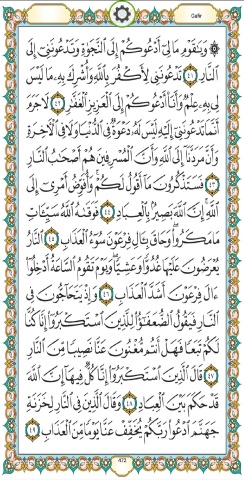 Gafir
۞ وَيَٰقَوْمِ مَا لِىٓ أَدْعُوكُمْ إِلَى ٱلنَّجَوٰةِ وَتَدْعُونَنِىٓ إِلَى
ٱلنَّارِ ٤١ تَدْعُونَنِى لِأَكْفُرَ بِٱللَّهِ وَأُشْرِكَ بِهِۦ مَا لَيْسَ
لِى بِهِۦ عِلْمٌ وَأَنَا۠ أَدْعُوكُمْ إِلَى ٱلْعَزِيزِ ٱلْغَفَّٰرِ ٤٢ لَا جَرَمَ
أَنَّمَا تَدْعُونَنِىٓ إِلَيْهِ لَيْسَ لَهُۥ دَعْوَةٌ فِى ٱلدُّنْيَا وَلَا فِى ٱلْءَاخِرَةِ
وَأَنَّ مَرَدَّنَآ إِلَى ٱللَّهِ وَأَنَّ ٱلْمُسْرِفِينَ هُمْ أَصْحَٰبُ ٱلنَّارِ
٤٣ فَسَتَذْكُرُونَ مَآ أَقُولُ لَكُمْ ۚ وَأُفَوِّضُ أَمْرِىٓ إِلَى
ٱللَّهِ ۚ إِنَّ ٱللَّهَ بَصِيرٌۢ بِٱلْعِبَادِ ٤٤ فَوَقَىٰهُ ٱللَّهُ سَيِّـَٔاتِ
مَا مَكَرُوا۟ ۖ وَحَاقَ بِـَٔالِ فِرْعَوْنَ سُوٓءُ ٱلْعَذَابِ ٤٥ ٱلنَّارُ
يُعْرَضُونَ عَلَيْهَا غُدُوًّا وَعَشِيًّا ۖ وَيَوْمَ تَقُومُ ٱلسَّاعَةُ أَدْخِلُوٓا۟
ءَالَ فِرْعَوْنَ أَشَدَّ ٱلْعَذَابِ ٤٦ وَإِذْ يَتَحَآجُّونَ فِى
ٱلنَّارِ فَيَقُولُ ٱلضُّعَفَٰٓؤُا۟ لِلَّذِينَ ٱسْتَكْبَرُوٓا۟ إِنَّا كُنَّا
لَكُمْ تَبَعًا فَهَلْ أَنتُم مُّغْنُونَ عَنَّا نَصِيبًا مِّنَ ٱلنَّارِ
٤٧ قَالَ ٱلَّذِينَ ٱسْتَكْبَرُوٓا۟ إِنَّا كُلٌّ فِيهَآ إِنَّ ٱللَّهَ
قَدْ حَكَمَ بَيْنَ ٱلْعِبَادِ ٤٨ وَقَالَ ٱلَّذِينَ فِى ٱلنَّارِ لِخَزَنَةِ
جَهَنَّمَ ٱدْعُوا۟ رَبَّكُمْ يُخَفِّفْ عَنَّا يَوْمًا مِّنَ ٱلْعَذَابِ ٤٩
472